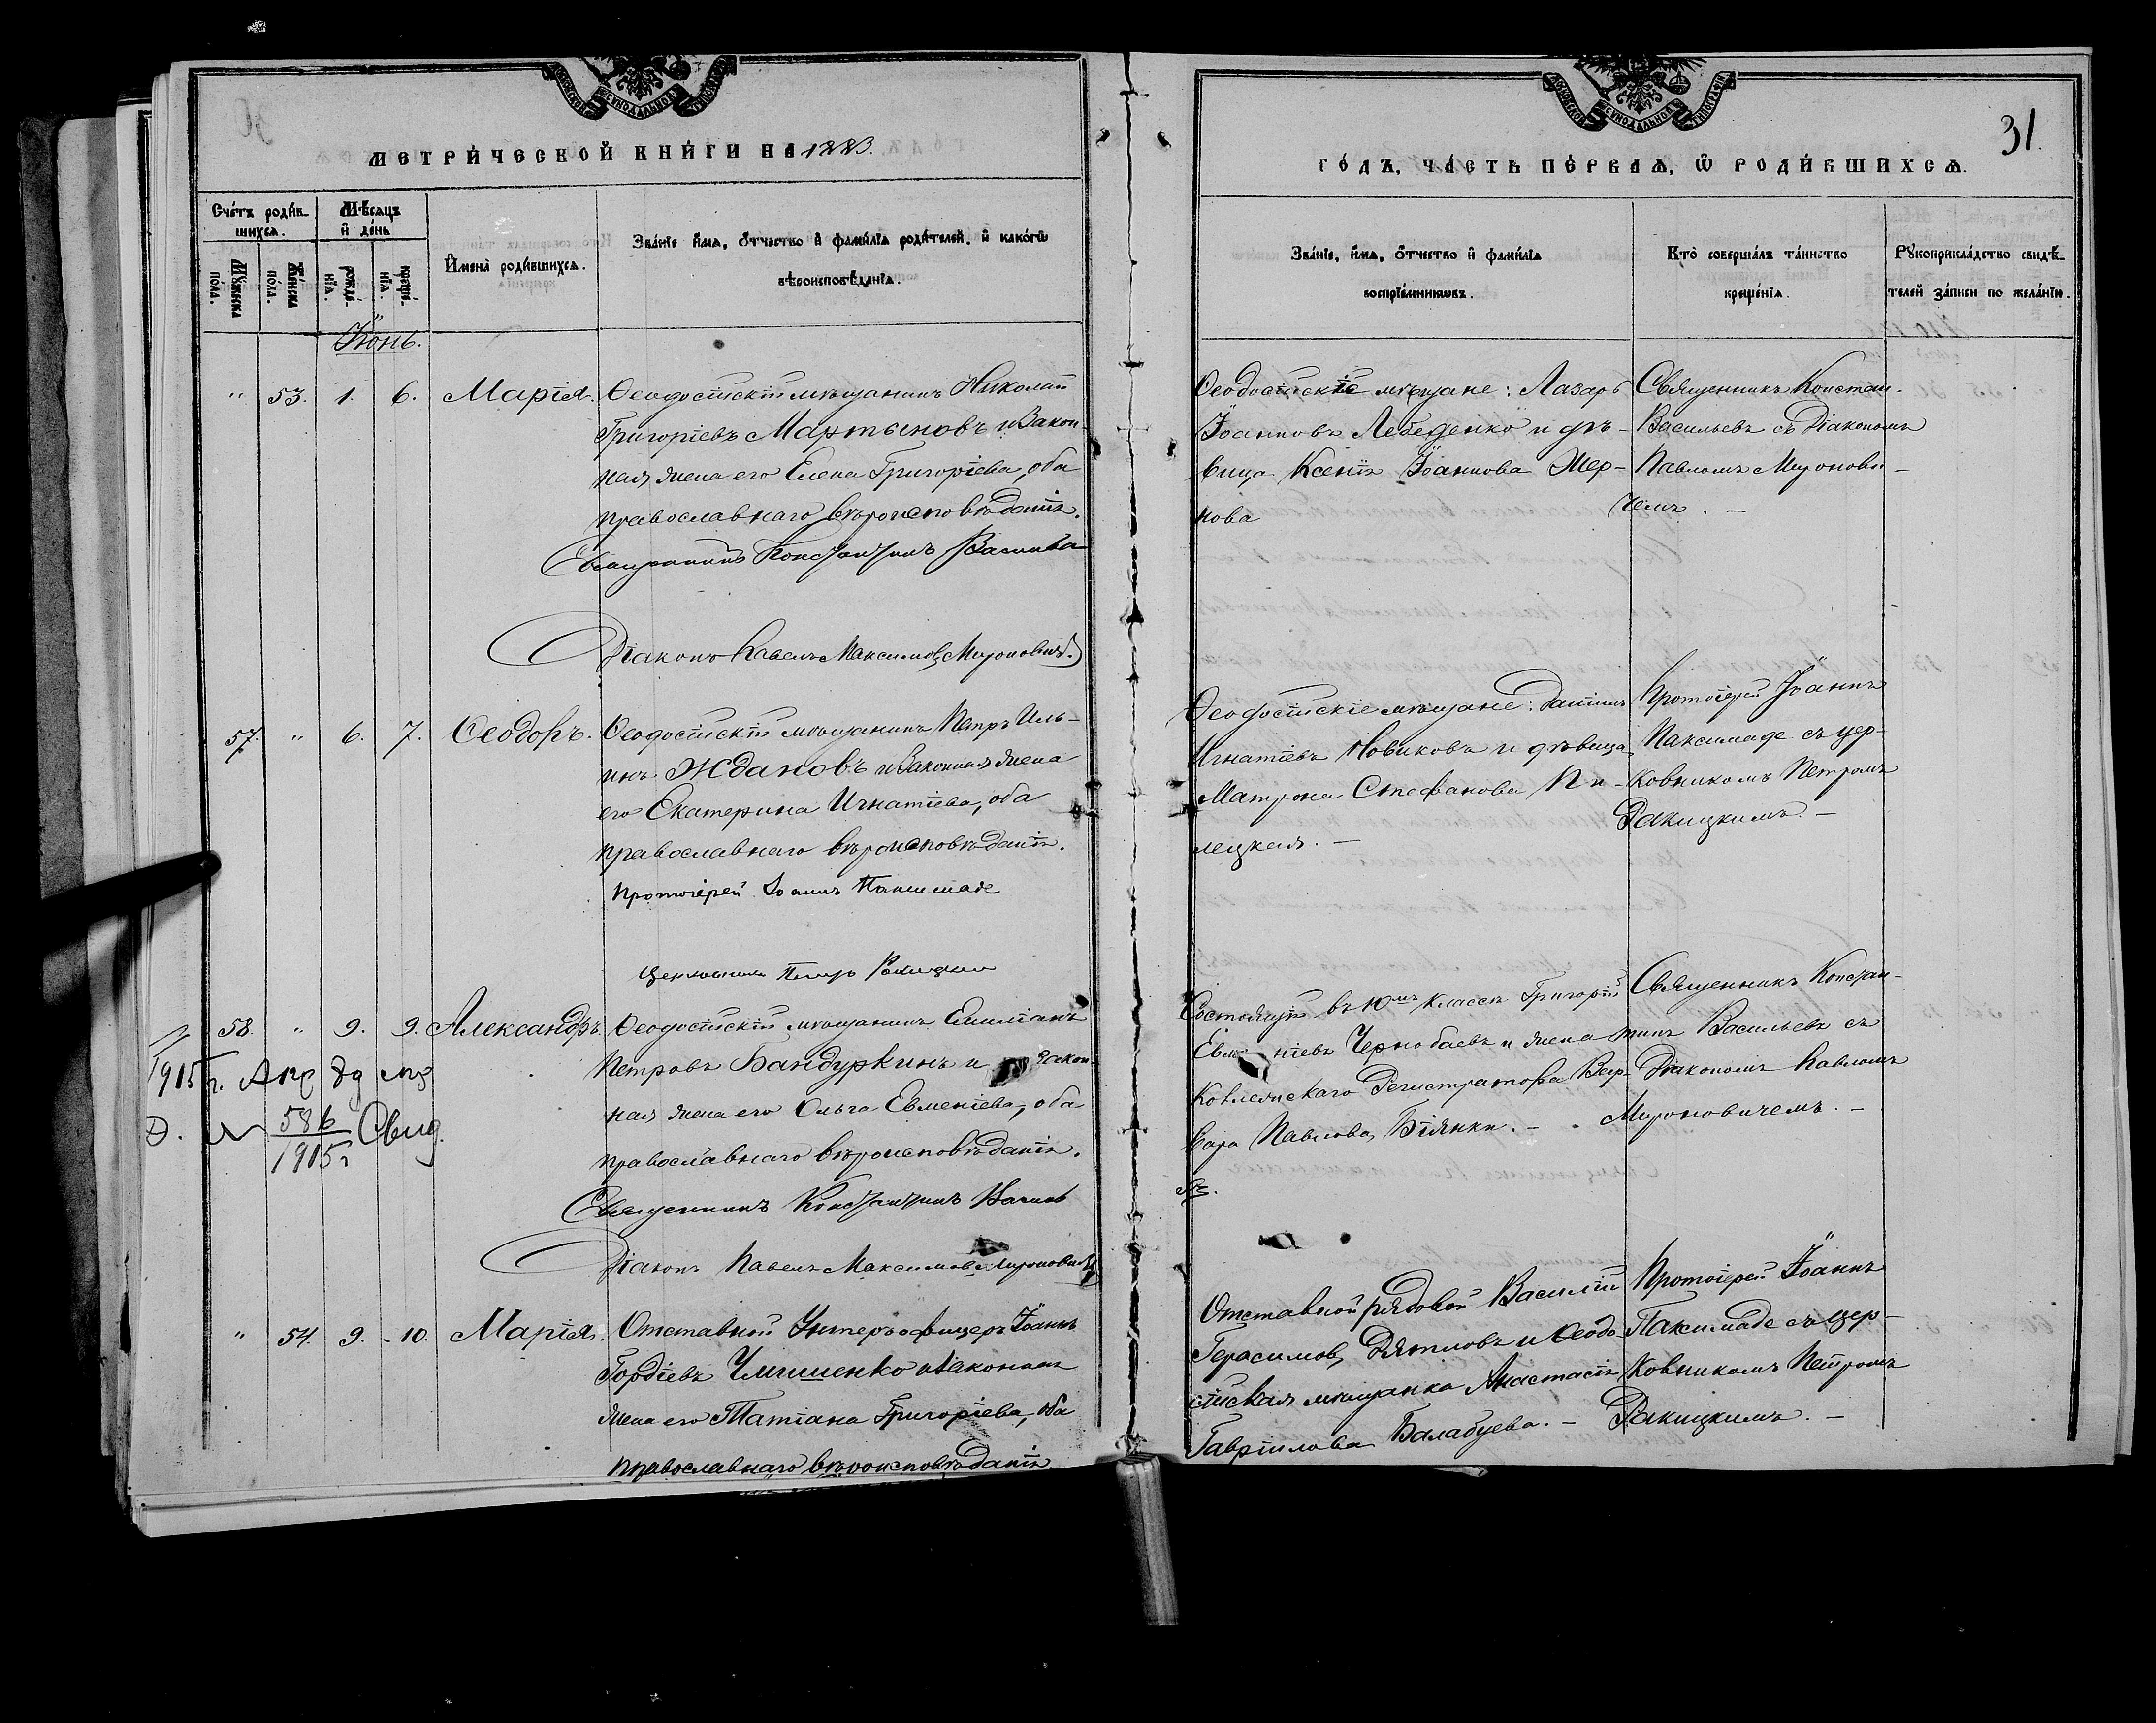 МЕТРИ́ЧЕСКОЙ КНИ́ГИ НА 1883.
Сче́тъ роди́в-
шихся.
Мѣ́сяцъ
и҆ де́нь
Му́жеска
по́ла.
Же́нска
по́ла.
рожде́-
нїѧ.
креще́-
нїѧ.
И҆мена̀ роди́вшихсѧ.
Зва́нїе и҆́мѧ, ѻ҆́тчество и҆ фамі́лїѧ роди́телей, и҆ како́гѡ
вѣроисповѣ́данїѧ.
Іюнь.
" 53. 1. 6. Марія.
Ѳеодосійскій мѣщанинъ Николай
Григоріевъ Мартыновъ и закон-
ная жена его Елена Григоріева, оба
православнаго вѣроисповѣданія.
Священникъ Константинъ Васильевъ
Діаконъ Павелъ Максимовъ Мироновичъ.
57. " 6. 7. Ѳеодоръ.
Ѳеодосійскій мѣщанинъ Петръ Иль-
инъ Ждановъ и законная жена
его Екатерина Игнатіева, оба
православнаго вѣроисповѣданія.
Протоіерей Іоаннъ Паксимаде
Церковникъ Петръ Ракицкій
58. " 9. 9. Александръ.
Ѳеодосійскій мѣщанинъ Емиліанъ
Петровъ Бандуркинъ и закон-
ная жена его Ольга Евменіева, оба
православнаго вѣроисповѣданія.
1915 г. Апр
586
1915 г
Свид.
Священникъ Константинъ Васильевъ
Діаконъ Павелъ Максимовъ Мироновичъ
" 54. 9. 10. Марія.
Отставной Унтеръ-офицеръ Іоаннъ
Гордіевъ Чмишенко и законная
жена его Татіана Григоріева, оба
православнаго вѣроисповѣданія
31.
ГО́ДЪ, ЧА́СТЬ ПЕ́РВАѦ, Ѡ҆ РОДИ́ВШИХСѦ.
Зва́нїе, и҆́мѧ, ѻ҆́тчество и҆ фамі́лїѧ
воспрїе́мникѡвъ.
Кто̀ соверша́лъ та́инство
креще́нїѧ.
Рꙋкоприкла́дство свидѣ́-
телей за́писи по жела́нїю.
Ѳеодосійскіе мѣщане: Лазарь
Іоанновъ Лебеденко и дѣ-
вица Ксенія Іоаннова Жер-
нова
Священникъ Констан.
Васильевъ съ Діакономъ
Павломъ Миронови-
чемъ. —
Ѳеодосійскіе мѣщане: Даніилъ
Игнатіевъ Новиковъ и дѣвица
Матрона Стефанова Пи-
лецкая. —
Протоіерей Іоаннъ
Паксимаде съ цер-
ковникомъ Петромъ
Ракицкимъ. —
Состоящій въ 10мъ классѣ Григорій
Чернобаевъ и жена
Коллежскаго Регистратора Вар-
вара Павлова Біянки. —
Священникъ Констан-
тинъ Васильевъ съ
Діакономъ Павломъ
Мироновичемъ. —
Отставной рядовой Василій
Герасимовъ Дятловъ и Ѳеодо-
сійская мѣщанка Анастасія
Гавріилова Балабуева. —
Протоіерей Іоаннъ
Паксимаде съ цер-
ковникомъ Петромъ
Ракицкимъ. —